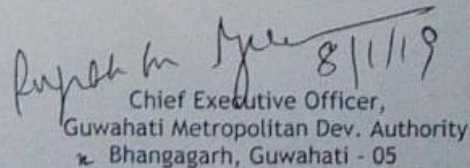 8/1/19
Chief Executive Officer,
Guwahati Metropolitan Dev. Authority
Bhangagarh, Guwahati - 05